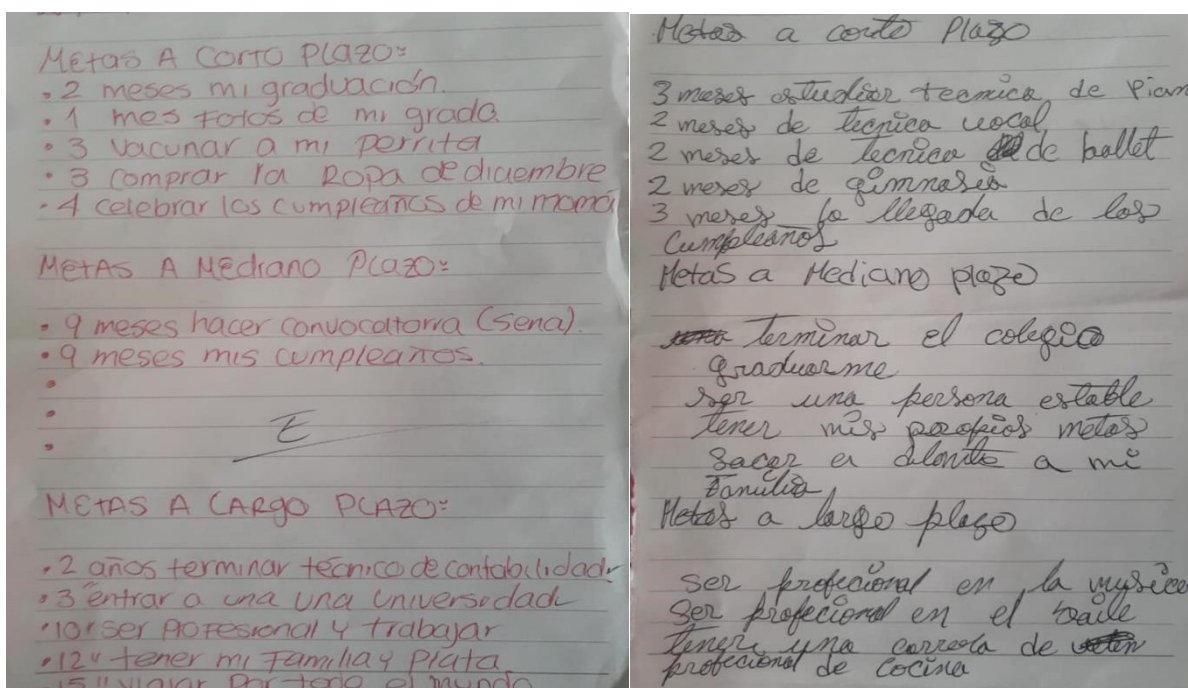 METAS A CORTO PLAZO:
• 2 meses mi graduación.
• 1 mes Fotos de mi grado
• 3 vacunar a mi perrita
• 3 comprar la Ropa de diciembre
• 4 celebrar los cumpleaños de mi mamá
METAS A MEDIANO PLAZO:
• 9 meses hacer convocaltorra (sena).
• 9 meses mis cumpleaños.
•
•
•
E
METAS A LARgO PLAZO:
• 2 años terminar técnico de contabilidad.
• 3 " entrar a una una universidad
• 10 " ser profesional y trabajar
• 12 " tener mi Familia y Plata
• 15 " viajar por todo el mundo
Metas a corto Plazo
3 meses estudiar tecnica de Pian
2 meses de tecnica vocal
2 meses de tecnica de ballet
2 meses de gimnasia
3 meses la llegada de los
Cumpleaños
Metas a Mediano plazo
terminar el colegio
graduarme
ser una persona estable
tener mis poropios metas
sacar a delante a mi
Familia
Metas a largo plazo
Ser profecional en la mysica
Ser profecional en el baile
tener una carrera de
profecional de cocina